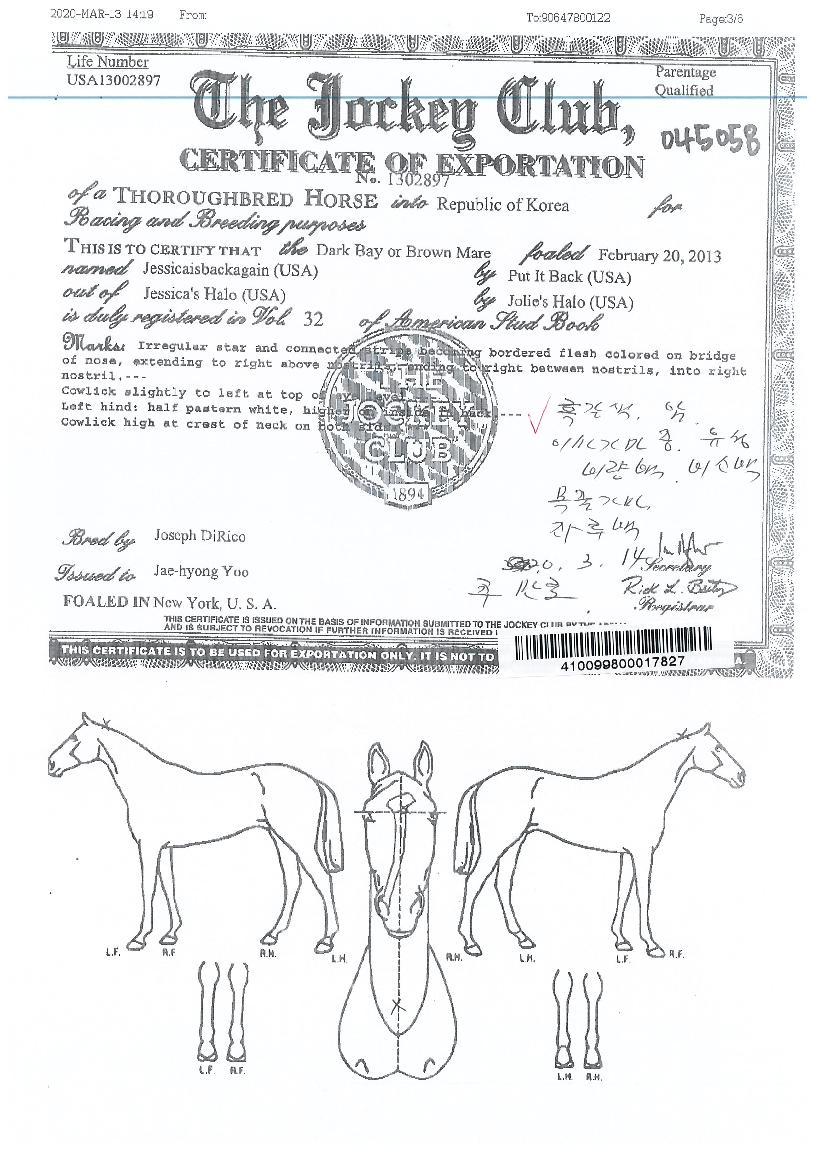 2020-MAR-13 14:19 From: To:90647800122 Page:3/6
Life Number
USA13002897
Parentage
Qualified
The Jockey Club,
045058
CERTIFICATE OF EXPORTATION
No. 1302897
of a THOROUGHBRED HORSE into Republic of Korea for
Racing and Breeding purposes
THIS IS TO CERTIFY THAT the Dark Bay or Brown Mare foaled February 20, 2013
named Jessicaisbackagain (USA) by Put It Back (USA)
out of Jessica's Halo (USA) by Jolie's Halo (USA)
is duly registered in Vol. 32 of American Stud Book
Marks: Irregular star and connected stripe becoming bordered flesh colored on bridge
of nose, extending to right above nostrils, ending to right between nostrils, into right
nostril,---
Cowlick slightly to left at top of eye level,
Left hind: half pastern white, higher on inside in back,---
Cowlick high at crest of neck on both sides
THE
JOCKEY
CLUB
1894
흑갈색. 암
유성
비량백 비소백
좌후백
Bred by Joseph DiRico
3. 14
Secretary
Issued to Jae-hyong Yoo
Registrar
FOALED IN New York, U. S. A.
THIS CERTIFICATE IS ISSUED ON THE BASIS OF INFORMATION SUBMITTED TO THE JOCKEY CLUB BY THE
AND IS SUBJECT TO REVOCATION IF FURTHER INFORMATION IS RECEIVED
THIS CERTIFICATE IS TO BE USED FOR EXPORTATION ONLY. IT IS NOT TO
410099800017827
L.F. R.F. R.H. L.H. R.H. L.H. L.F. R.F.
L.F. R.F. L.H. R.H.